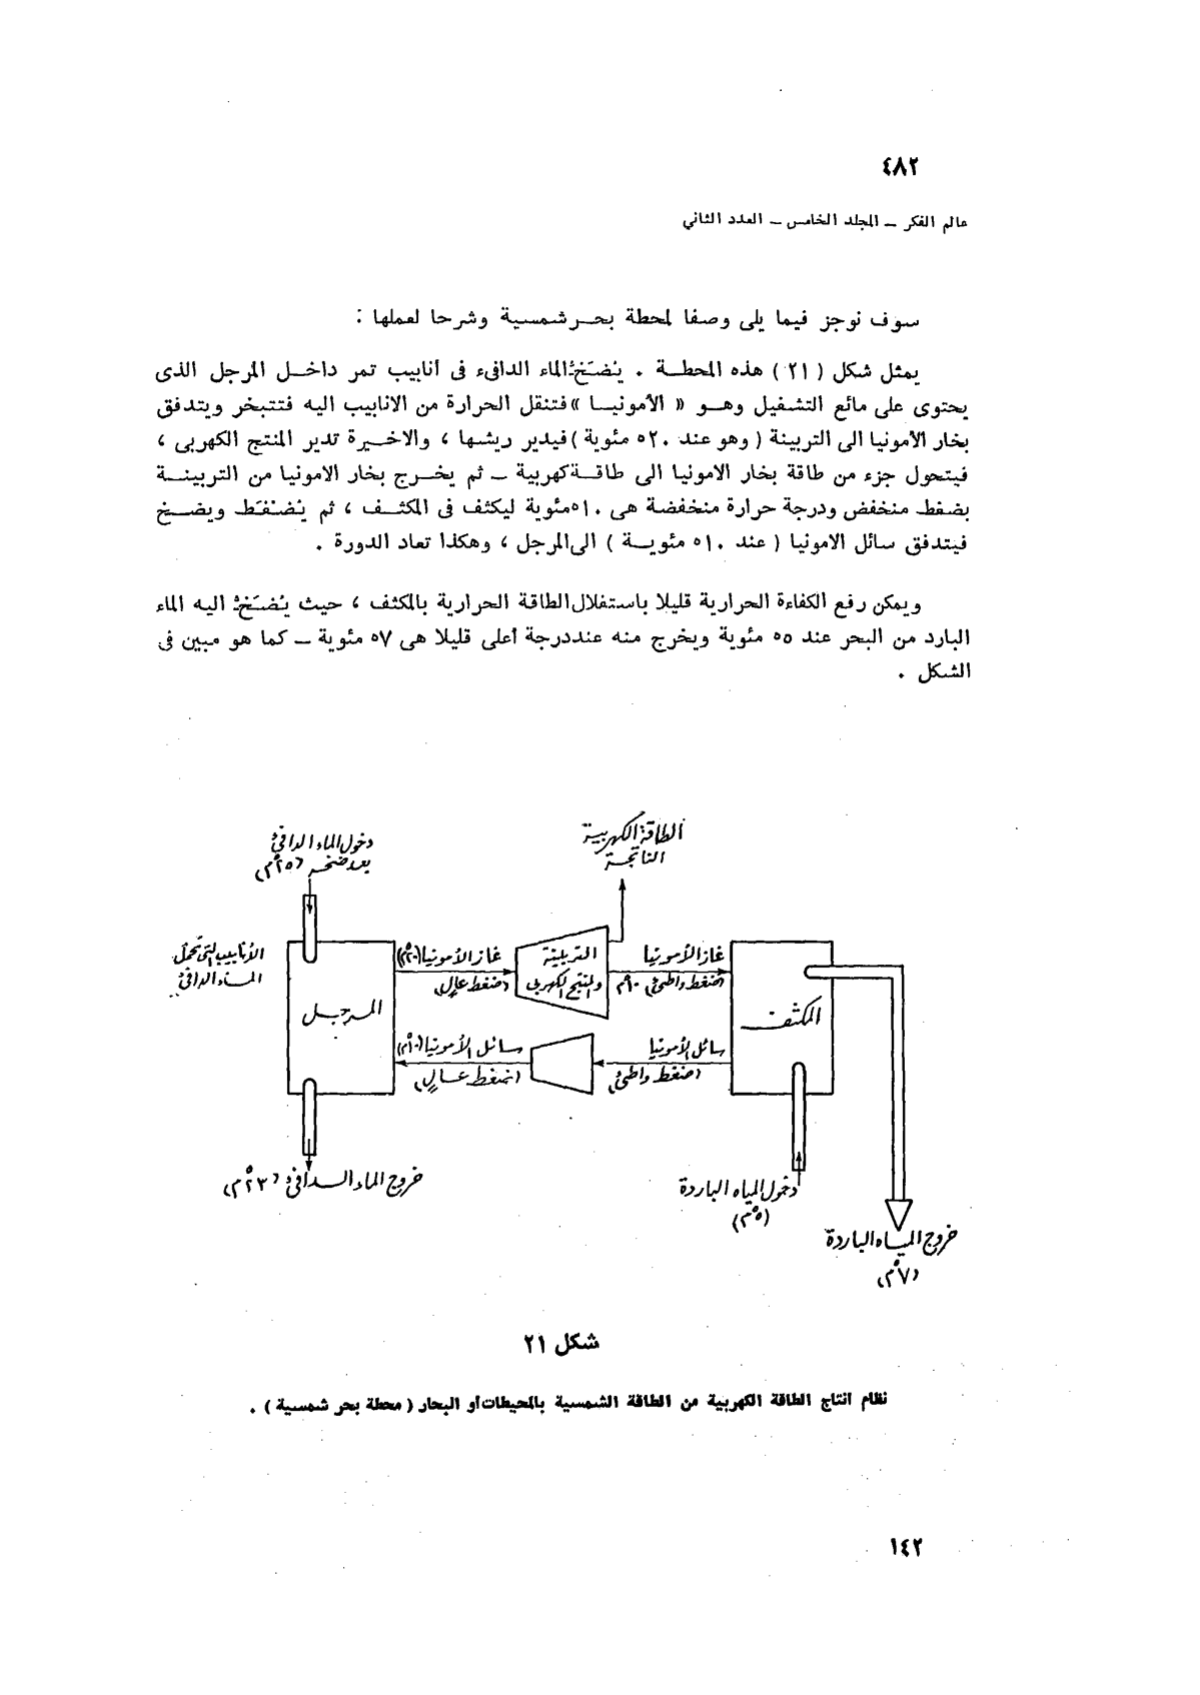 ٤٨٢
عالم الفكر ــ المجلد الخامس ــ العدد الثاني
سوف نوجز فيما يلى وصفا لمحطة بحر شمسية وشرحا لعملها :
يمثل شكل ( ٢١ ) هذه المحطة . يُضَخّ الماء الدافىء فى أنابيب تمر داخل المرجل الذى
يحتوى على مائع التشغيل وهو « الأمونيا » فتنقل الحرارة من الانابيب اليه فتتبخر ويتدفق
بخار الأمونيا الى التربينة ( وهو عند ٢٠° مئوية ) فيدير ريشها ، والاخيرة تدير المنتج الكهربى ،
فيتحول جزء من طاقة بخار الامونيا الى طاقة كهربية ــ ثم يخرج بخار الامونيا من التربينة
بضغط منخفض ودرجة حرارة منخفضة هى ١٠° مئوية ليكثف فى المكثف ، ثم يُضْغَط ويضخ
فيتدفق سائل الامونيا ( عند ١٠° مئوية ) الى المرجل ، وهكذا تعاد الدورة .
ويمكن رفع الكفاءة الحرارية قليلا باستغلال الطاقة الحرارية بالمكثف ، حيث يُضَخّ اليه الماء
البارد من البحر عند ٥° مئوية ويخرج منه عند درجة أعلى قليلا هى ٧° مئوية ــ كما هو مبين فى
الشكل .
الطاقة الكهربية
الناتجة
دخول الماء الدافئ
بعد ضخه (٢٥°م)
الأنابيب التى تحمل
الماء الدافئ
المرجل
غاز الأمونيا (٢٠°م)
(ضغط عالٍ)
التربينة
والمنتج الكهربى
غاز الأمونيا
(ضغط واطئ) ١٠°م
المكثف
سائل الأمونيا (١٠°م)
(ضغط عالٍ)
سائل الأمونيا
(ضغط واطئ)
خروج الماء الدافئ (٢٣°م)
دخول المياه الباردة
(٥°م)
خروج المياه الباردة
(٧°م)
شكل ٢١
نظام انتاج الطاقة الكهربية من الطاقة الشمسية بالمحيطات أو البحار ( محطة بحر شمسية ) .
١٤٢